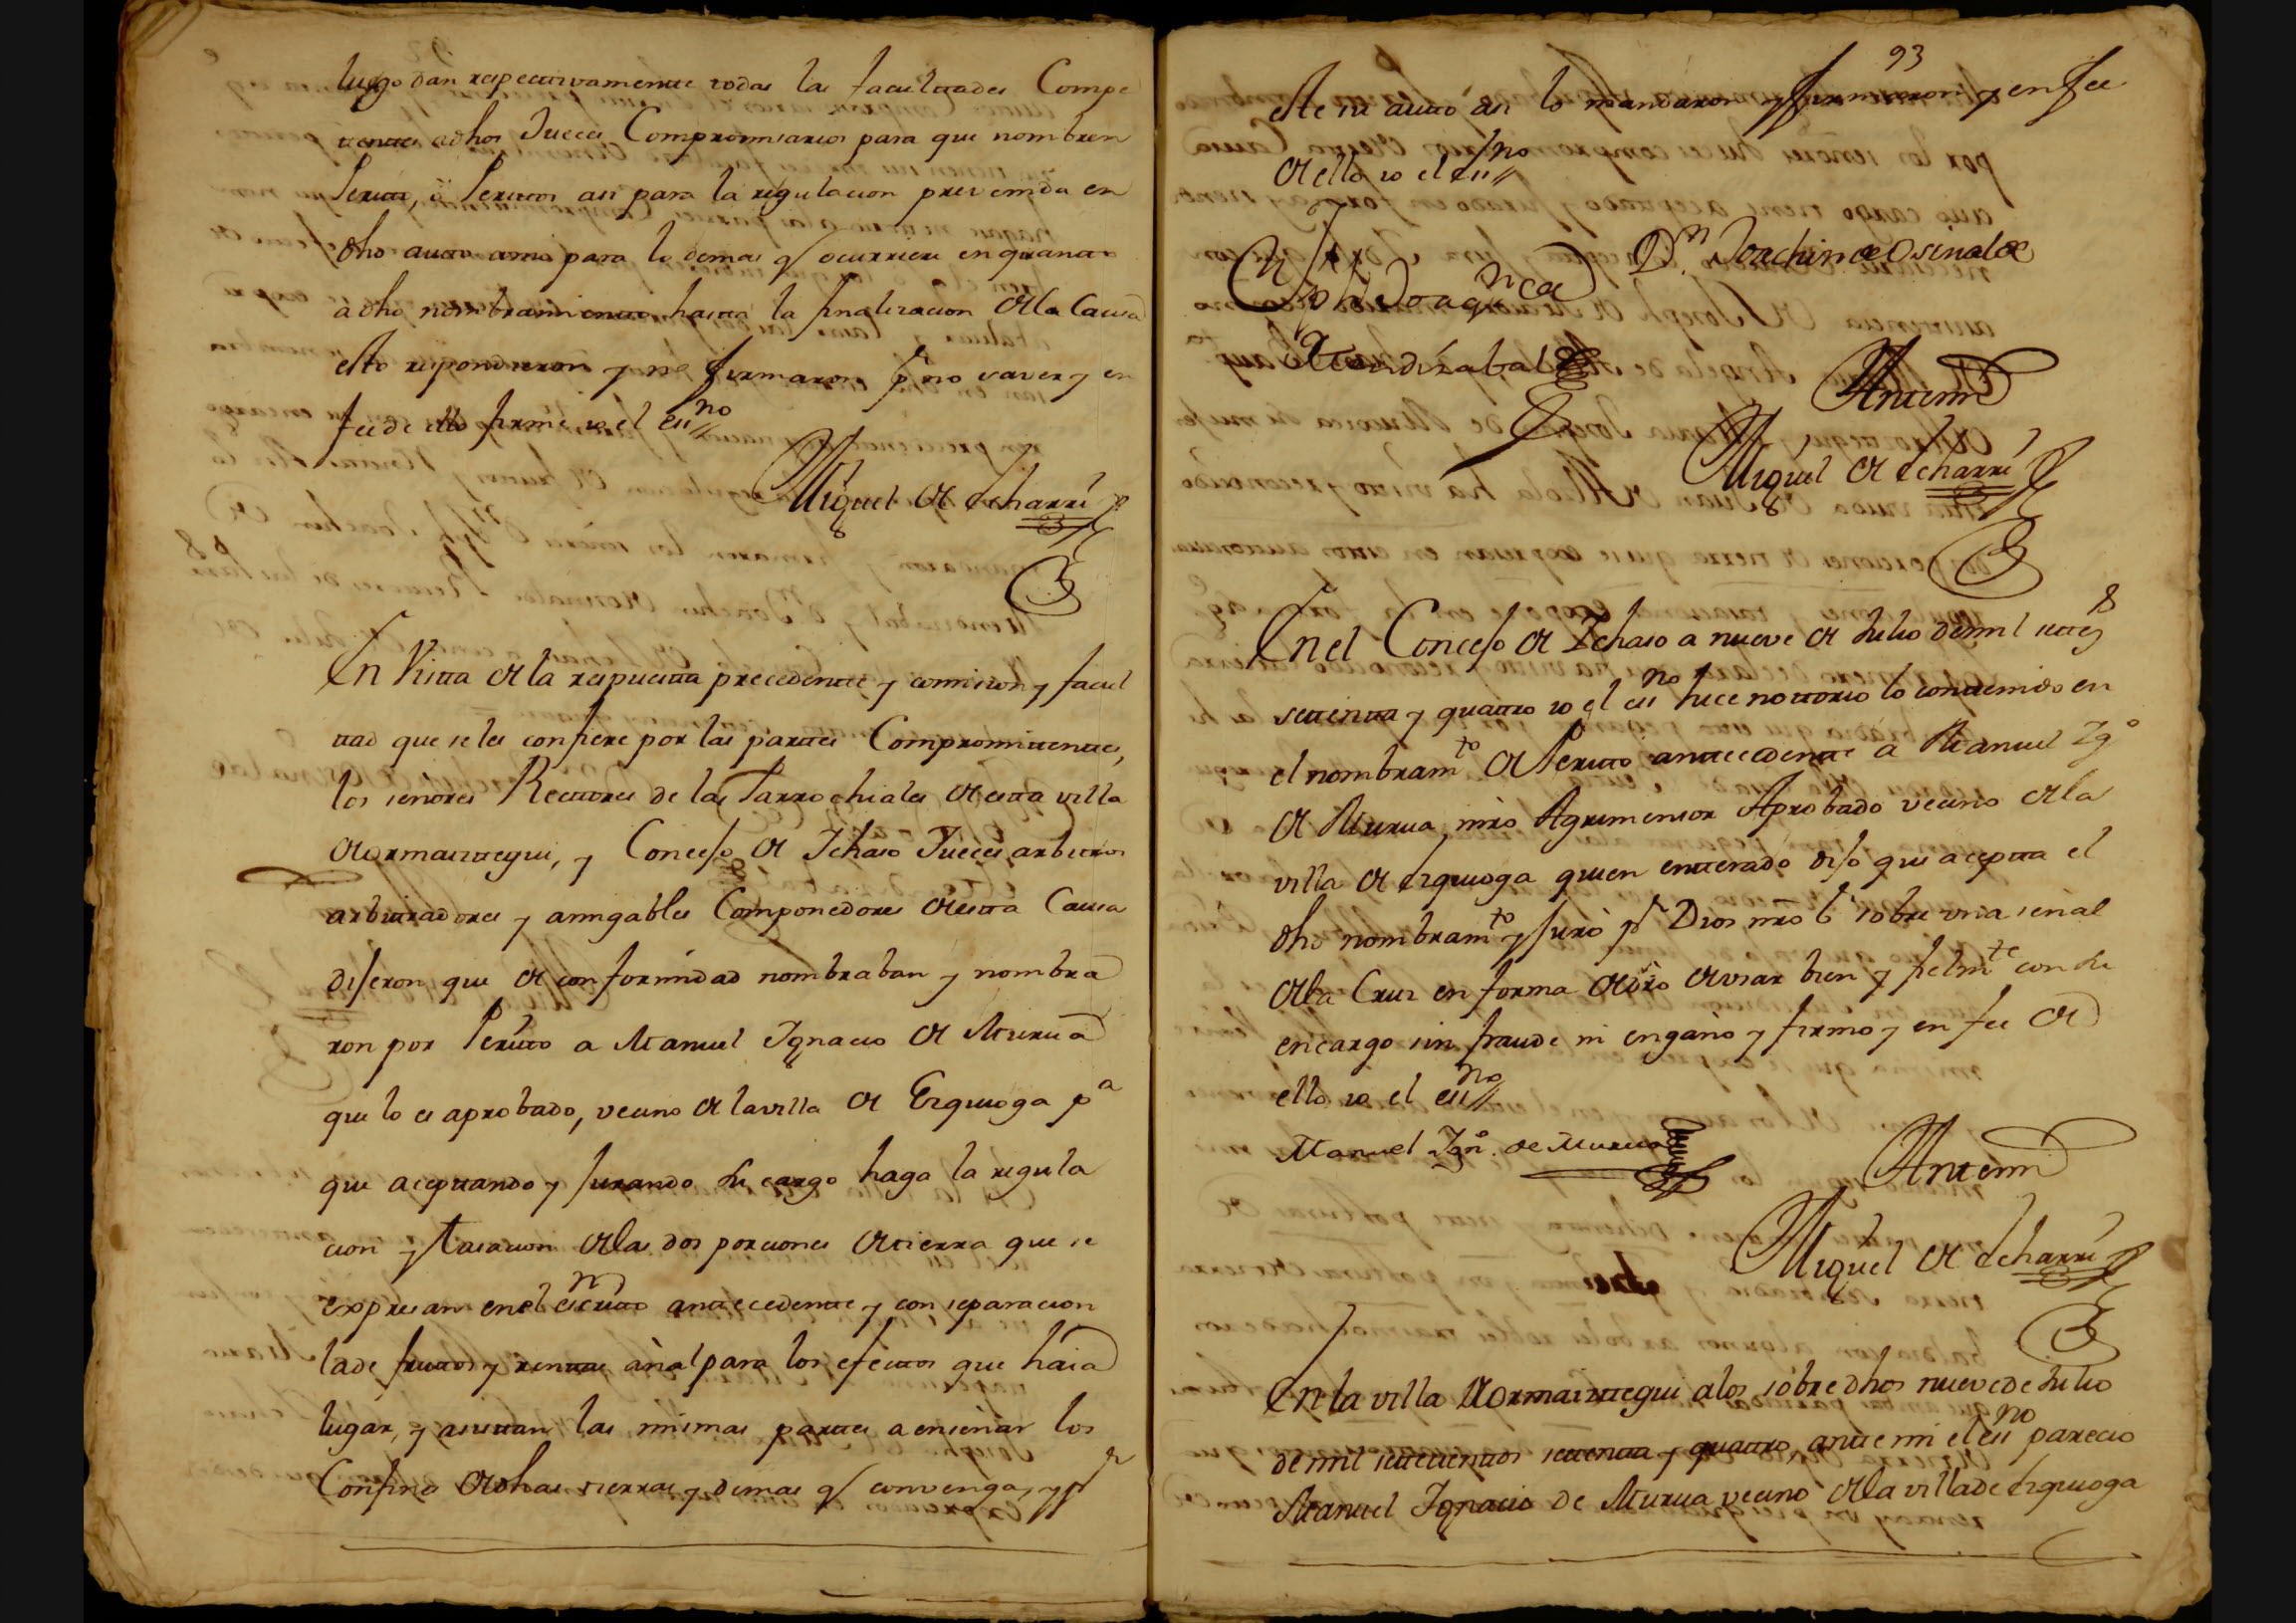 luego dan respectivamente todas las facultades Compe
tentes a dhos Jueces Compromisarios para que nombren
Perito, ô Peritos asi para la regulacion prevenida en
dho auto como para lo demas q ocurriere en quanto
a dho nombramiento hasta la finalizacion de la Causa
esto respondieron y no firmaron pr no saver y en
fee de ello firmé yo el essno
Miguel de Echarri
En Vista de la respuesta precedente y comision y facul
tad que se les confiere por las partes Compromitentes,
los señores Rectores de las Parrochiales de esta villa
de Ormaiztegui, y Concejo de Ichaso Jueces arbitros
arbitradores y amigables Componedores de esta Causa
dijeron que de conformidad nombraban y nombra
ron por Perito a Manuel Ignacio de Murua
que lo es aprobado, vecino de la villa de Ezquioga pa
que aceptando y jurando su cargo haga la regula
cion y tasacion de las dos porciones de tierra que se
expresan en el escrito antecedente y con separacion
la de frutos y rentas añal para los efectos que haia
lugar, y asistan las mismas partes a enseñar los
Confines de dhas tierras y demas q convenga, y pr
93
este su auto asi lo mandaron y firmaron y en fee
de ello yo el essno
Dn Joachin de Osinalde
Dn Jph Joaqn de
Mendizabal
Antemi
Miguel de Echarri
En el Concejo de Ichaso a nueve de Julio de mil setes
settenta y quattro yo el essno hice nottorio lo contenido en
el nombramto de Perito antecedente a Manuel Igo
de Murua, mro Agrimensor Aprobado vecino de la
villa de Ezquioga quien enterado dijo que acepta el
dho nombramto y juró pr Dios nro Sr sobre una señal
de la Cruz en forma de dro de usar bien y fielmte con su
encargo sin fraude ni engaño y firmo y en fee de
ello yo el essno
Manuel Igno de Murua
Antemi
Miguel de Echarri
En la villa de Ormaiztegui a los sobredhos nueve de Julio
de mil settecientos settenta y quattro, ante mi el essno parecio
Manuel Ignacio de Murua vecino de la villa de Ezquioga